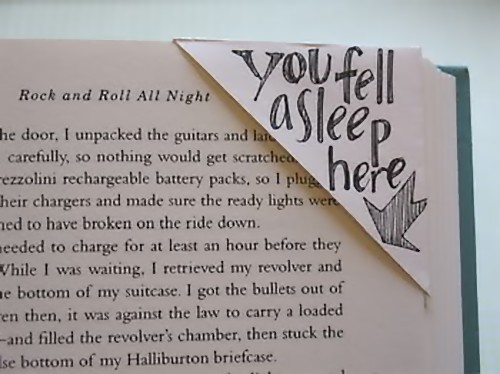 you fell
asleep
here
Rock and Roll All Night
he door, I unpacked the guitars and
carefully, so nothing would get scratched
ezzolini rechargeable battery packs, so I plug
heir chargers and made sure the ready lights were
ned to have broken on the ride down.
needed to charge for at least an hour before they
While I was waiting, I retrieved my revolver and
e bottom of my suitcase. I got the bullets out of
en then, it was against the law to carry a loaded
—and filled the revolver's chamber, then stuck the
lse bottom of my Halliburton briefcase.